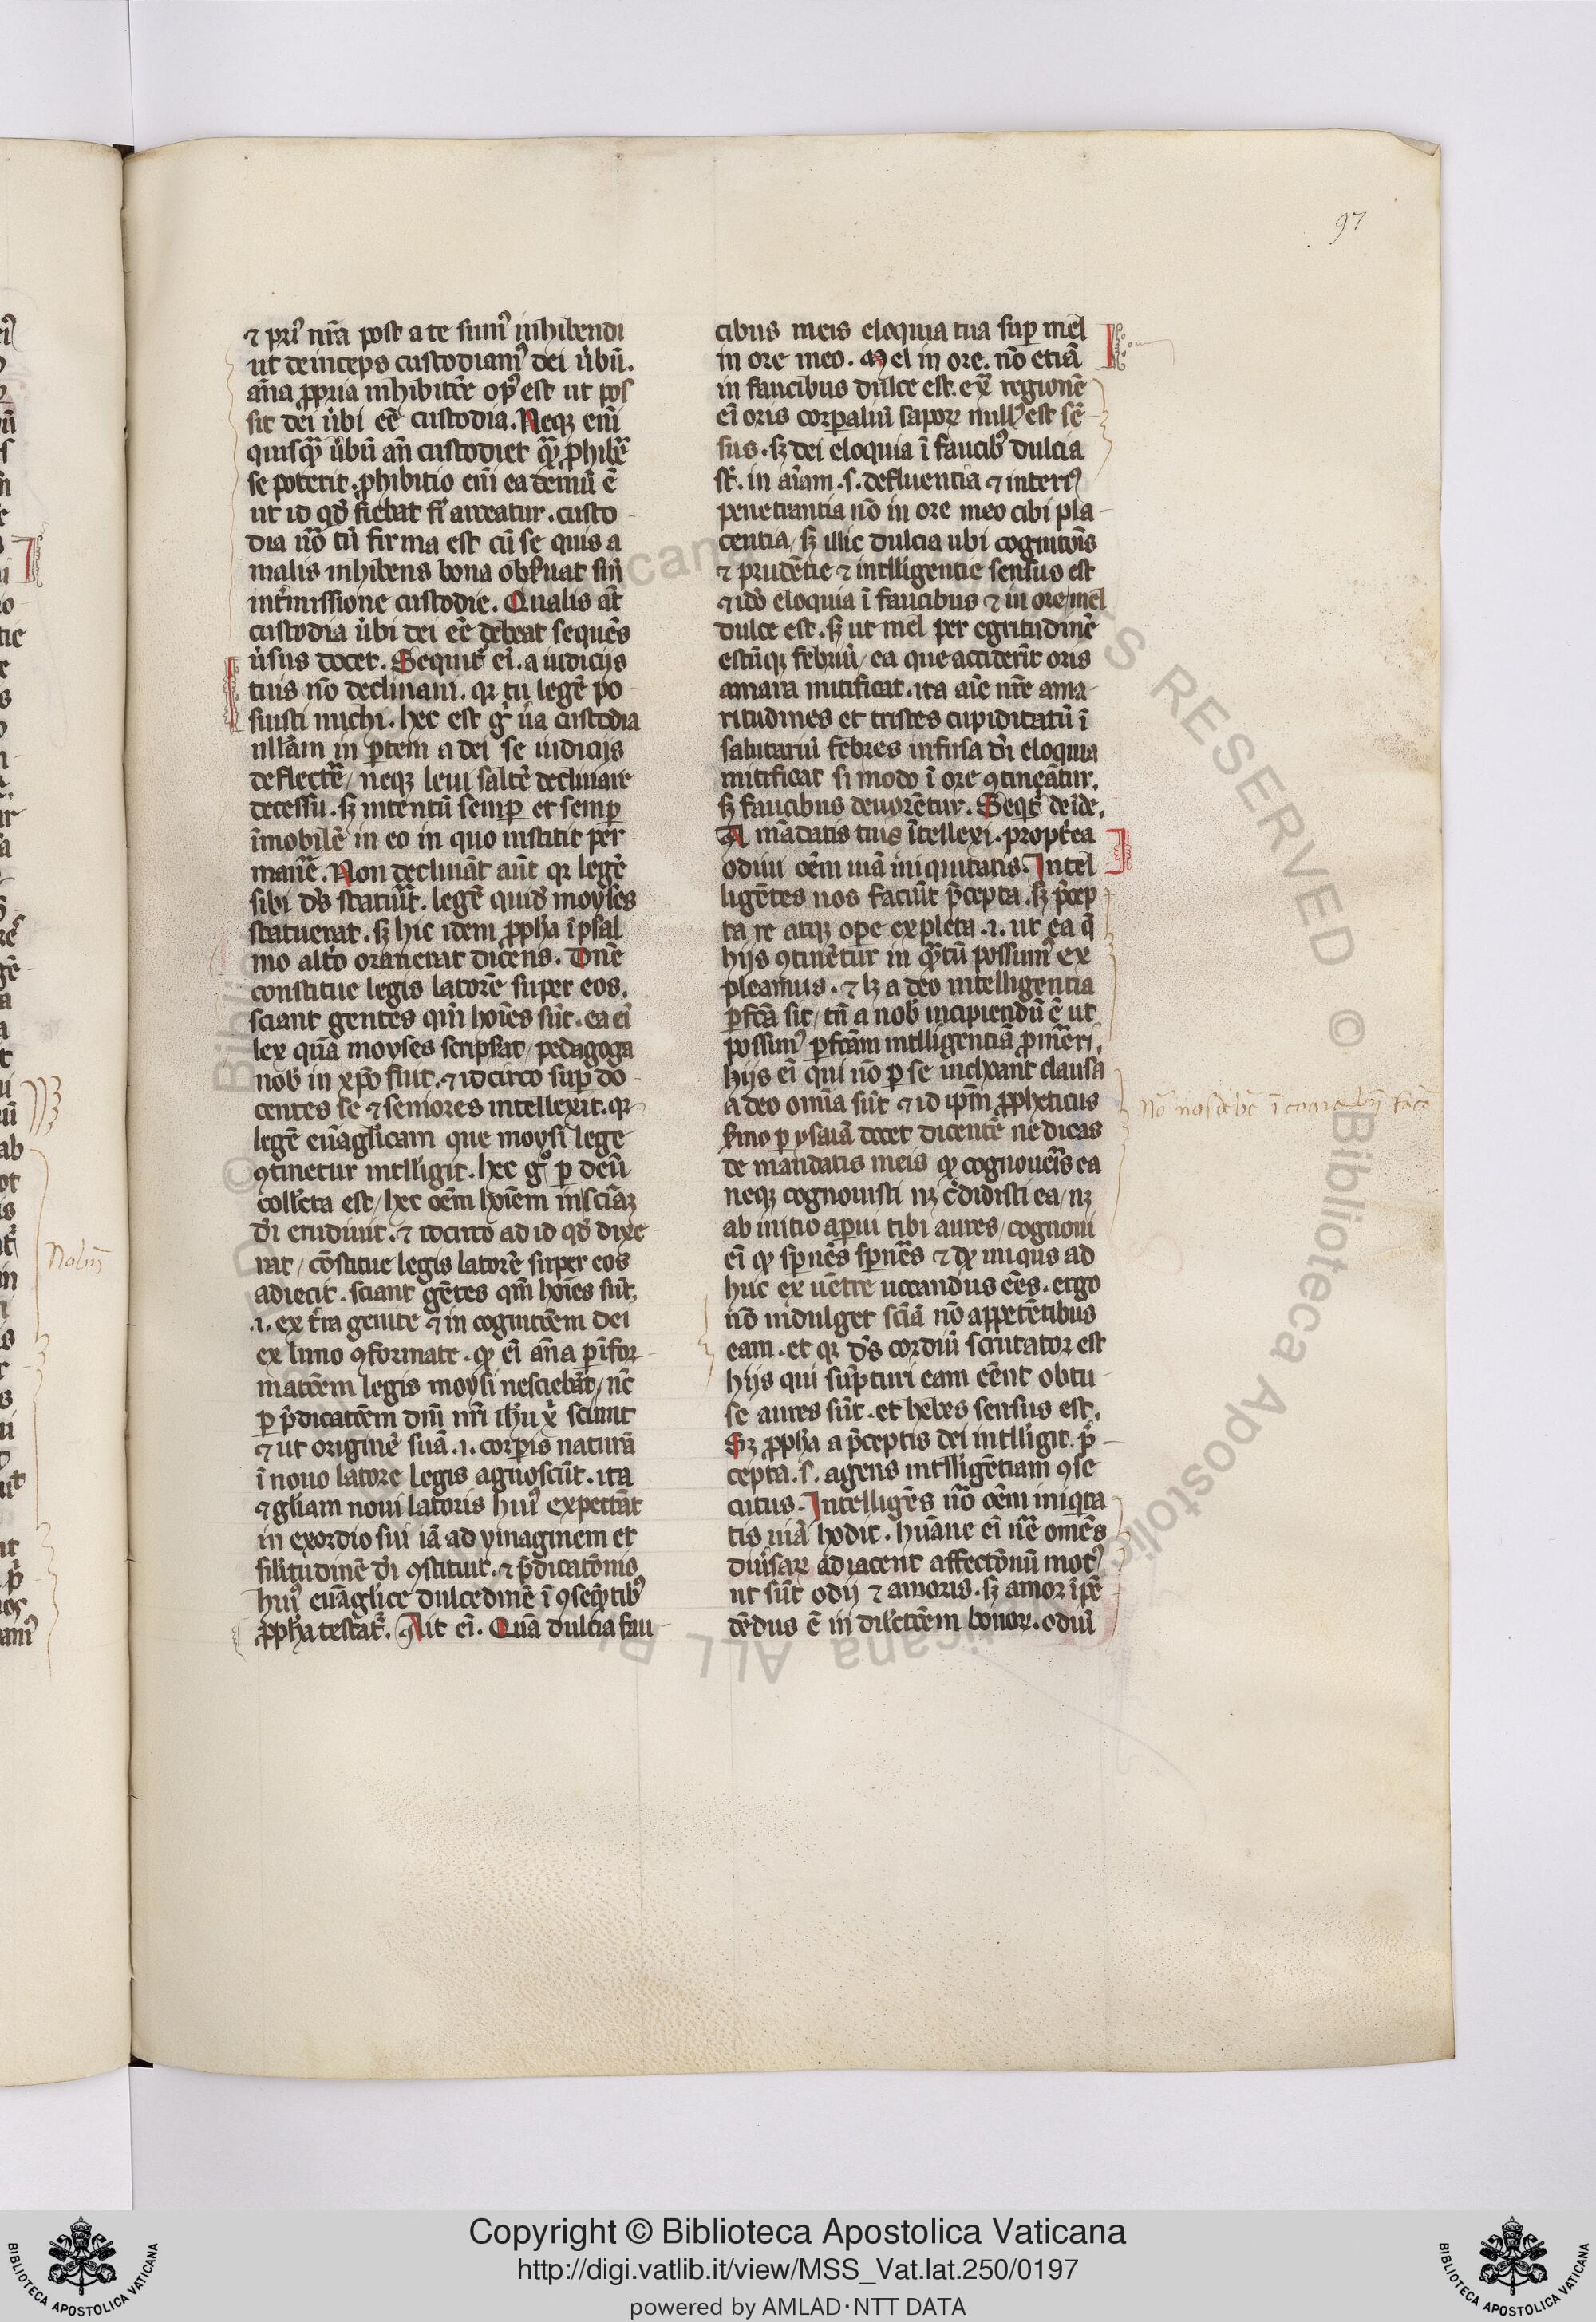 97
⁊ pri᷒ nr̄a post a te sum᷒ inhibendi
ut deinceps custodiam᷒ dei ūbū.
an̄a ꝓpria inhibitōe op᷒ est ut pos
sit dei ūbi eē custodia. Neqꝫ enī
quisqᷓ ūbū an̄ custodiet qᷓ ꝓhibē
se poterit. ꝓhibitio enī ea demū ē
ut id qd̄ fiebat fī arceatur. custo
dia ūo tū firma est cū se quis a
malis inhibens bona obẜuat sin̄
int̄missione custodie. Qualis aūt
custodia ūbi dei eē debeat sequēs
ūsus docet. Sequit᷑ ei̅. a iudicijs
tuis nō declinaui. qr tu legē po
suisti michi. hec est gͥ ūa custodia
ullam in ꝑtem a dei se iudicijs
deflectē / neqꝫ leui saltē declinare
decessu. sꝫ intentū semꝑ et semꝑ
īmobilē in eo in quo institit per
manē. Non declināt aūt qr legē
sibi dūs statuit. legē quid moyses
statuerat. sꝫ hic idem ꝓpħa ī psal
mo alt̄o orauerat dicens. Dn̄e
constitue legis latorē super eos.
sciant gentes qm̄ hoīes sūt. ea ei̅
lex quā moyses scripẜat / pedagoga
nob̄ in xp̄o fuit. ⁊ idcirco suꝑ do
centes se ⁊ seniores intellexit. qr
legē euāglicam que moysi lege
ꝯtinetur intlligit. hec gͦ ꝑ deū
collata est / hec oēm hoīem in sciāꝫ
dī erudiuit. ⁊ idcirco ad id qd̄ dixe
rat / cōstitue legis latorē super eos
adiecit. sciant gētes qm̄ hoīes sūt.
.i. ex t̄ra genite ⁊ in cognitōem dei
ex limo ꝯformate. qꝫ ei̅ an̄a ꝑ īfor
matōem legis moysi nesciebāt / nc̄
ꝑ p̄dicatōem dn̄i nr̄i ihū x̄ sciunt
⁊ ut originē suā .i. corꝑis naturā
ī nouo latore legis agnoscūt. ita
⁊ gl̄iam noui latoris hui᷒ expectāt
in exordio sui iā ad ymaginem et
silitudinē dī ꝯstituit. ⁊ p̄dicatōnis
hui᷒ euāglice dulcedinē ī ꝯseqn̄tib᷒
ꝓpħa testat᷑. Ait ei̅. Quā dulcia fau
cibus meis eloquia tua suꝑ mel
in ore meo. Mel in ore. nō etiā
in faucibus dulce est. ex̄ regionē
ei̅ oris corꝑaliū sapoꝝ null᷒ est sē
sus. sꝫ dei eloquia ī faucib᷒ dulcia
st̄. in aīam .s. defluentia ⁊ interi᷒
penetrantia nō in ore meo cibi pla
centia / sꝫ illic dulcia ubi cognitōis
⁊ prudētie ⁊ intlligentie sensuo est
⁊ idō eloquia ī faucibus ⁊ in ore mel
dulce est. sꝫ ut mel per egritudinē
estūqꝫ febriū / ea que acciderīt oris
amara mitificat. ita aīe nr̄e ama
ritudines et tristes cupiditatū ī
salutariū febres infusa dn̄i eloquia
mitificat si modo ī ore ꝯtineātur.
sꝫ faucibus deuorētur. Seqt᷑ deīde.
A mādatis tuis ītellexi. propt̄ea
odiui oēm uiā iniquitatis. Intel
ligētes nos faciūt p̄cepta. sꝫ p̄cep
ta re atqꝫ oꝑe expleta .i. ut ea q̄
hijs ꝯtinētur in qᷓtū possum᷒ ex
pleamus. ⁊ lꝫ a deo intelligentia
ꝑfcā sit / tn̄ a nob̄ incipiendū ē ut
possim᷒ ꝑfcām intlligentiā ꝓmeri.
hijs ei̅ qui nō ꝑ se inchoant clausa
a deo omīa sūt ⁊ id ipm̄ ꝓpheticus
ẜmo ꝑ ysaiā docet dicentē ne dicas
de mandatis meis qꝫ cognoueris ea
neqꝫ cognouisti nꝫ c̄didisti ea / nꝫ
ab initio aꝑui tibi aures / cognoui
ei̅ qꝫ sꝑnēs sꝑnēs ⁊ qꝫ iniqus ad
huc ex uētre uocandus eēs. ergo
nō indulget sciā nō appetētibus
eam. et qr dūs cordiū scrutator est
hijs qui sūpturi eam eēnt obtu
se aures sūt. et hebes sensus est.
Sꝫ ꝓpħa a p̄ceptis dei intlligit. p̄
cepta .s. agens intlligētiam ꝯse
cutus. Intelligēs ūo oēm iniqta
tis uiā hodit. huāne ei̅ nēe omēs
diūsaꝝ adiacent affectōnū mot᷒
ut sūt odij ⁊ amoris. sꝫ amor īpē
dēdus ē in dilectōem bonoꝝ. odiū
Copyright © Biblioteca Apostolica Vaticana
http://digi.vatlib.it/view/MSS_Vat.lat.250/0197
powered by AMLAD·NTT DATA
BIBLIOTECA APOSTOLICA VATICANA
BIBLIOTECA APOSTOLICA VATICANA